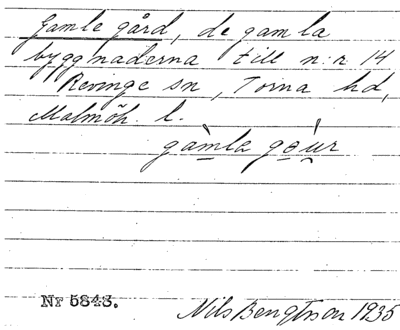 Gamle gård, de gamla
byggnaderna till n:r 14
Revinge sn, Torna hd,
Malmöh. l.
gàmla gəúr
Nr 5843.
Nils Bengtson 1935